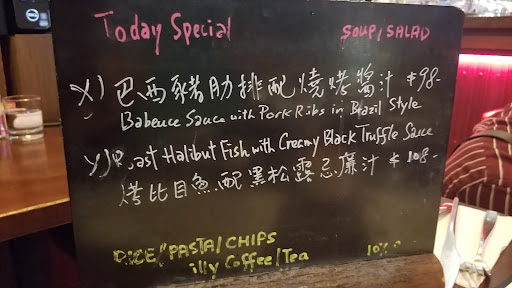 Today Special
SOUP/SALAD
X) 巴西豬肋排配燒烤醬汁 $98-
Babeuce Sauce with Pork Ribs in Brazil Style
Y) Roast Halibut Fish with Creamy Black Truffle Sauce
烤比目魚配黑松露忌廉汁 $108-
RICE/PASTA/CHIPS
illy Coffee/Tea